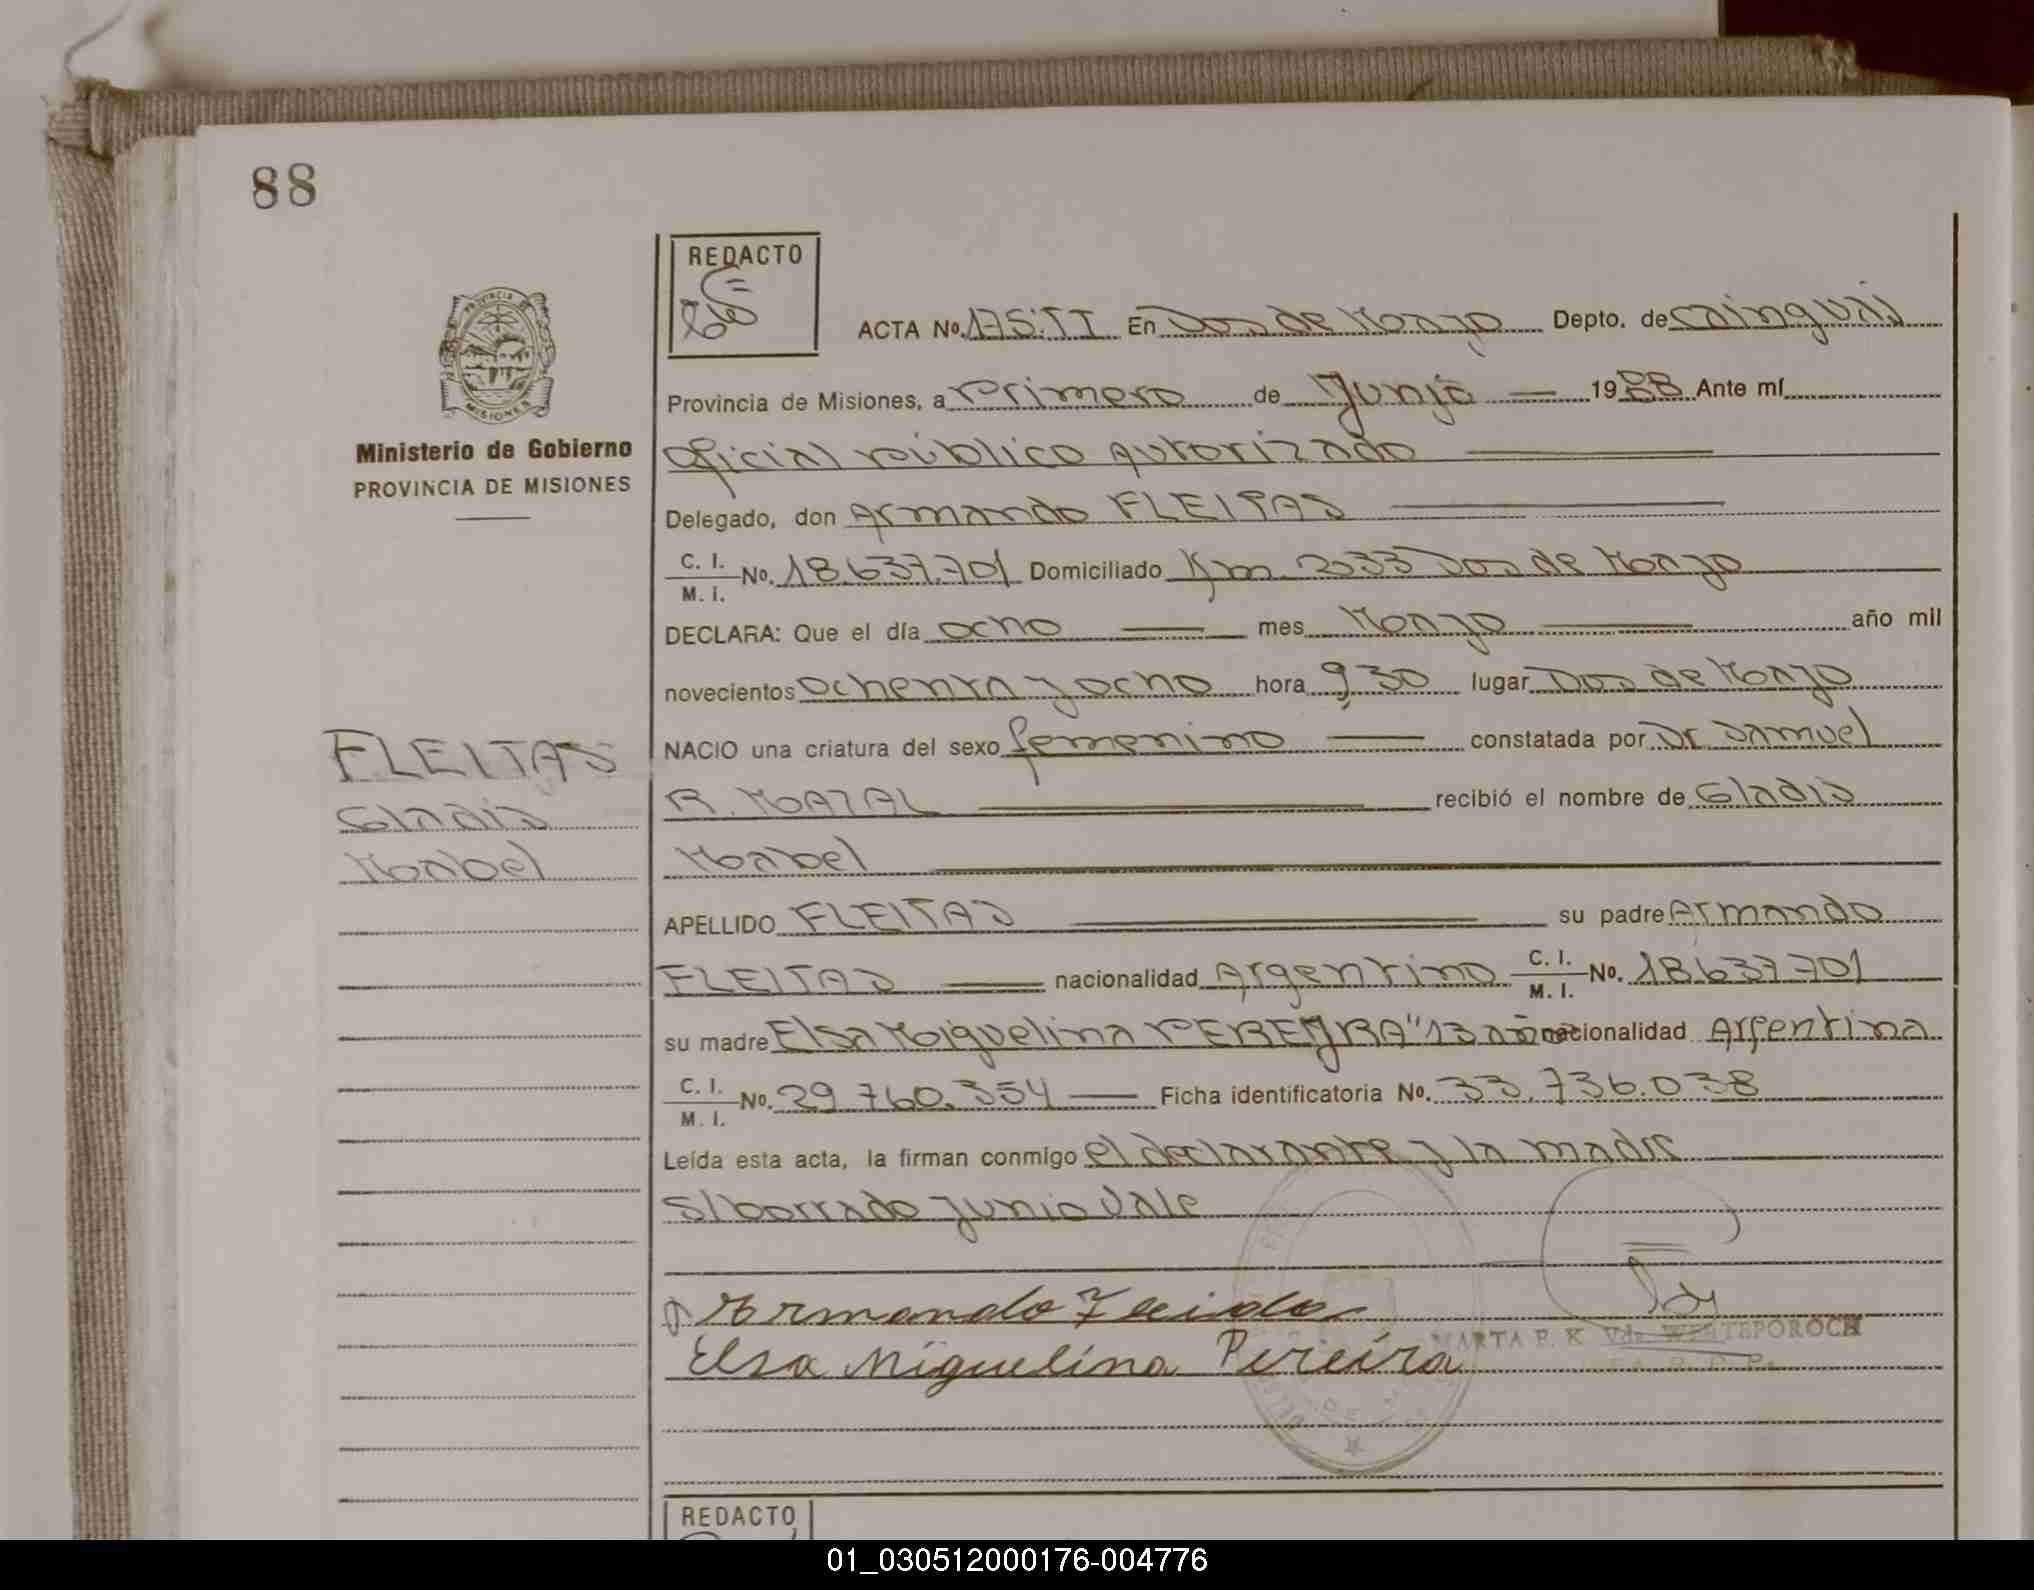 88
REDACTO
ACTA No. 175:TI En Dos de Mayo Depto. de Cainguás
Provincia de Misiones, a Primero de Junio — 1988 Ante mí
Oficial público Autorizado
Ministerio de Gobierno
PROVINCIA DE MISIONES
Delegado, don Armando FLEITAS
C. I.
M. I. No. 18.637.701 Domiciliado Km. 2033 Dos de Mayo
DECLARA: Que el día ocho — mes Mayo — año mil
novecientos ochenta y ocho hora 9,30 lugar Dos de Mayo
NACIO una criatura del sexo femenino — constatada por Dr. Samuel
R. MOATAL — recibió el nombre de Gladis
Mabel
FLEITAS
Gladis
Mabel
APELLIDO FLEITAS — su padre Armando
FLEITAS — nacionalidad Argentino C. I.
M. I. No. 18.637.701
su madre Elsa Miguelina PEREYRA "13 años nacionalidad Argentina
C. I.
M. I. No. 29.760.354 — Ficha identificatoria No. 33.736.038
Leída esta acta, la firman conmigo el declarante y la madre
S/borrado Junio Vale
Armando Fleidas
Elsa Miguelina Pereíra
MARTA E. K. Vda. WESTEPOROCH
REDACTO
01_030512000176-004776